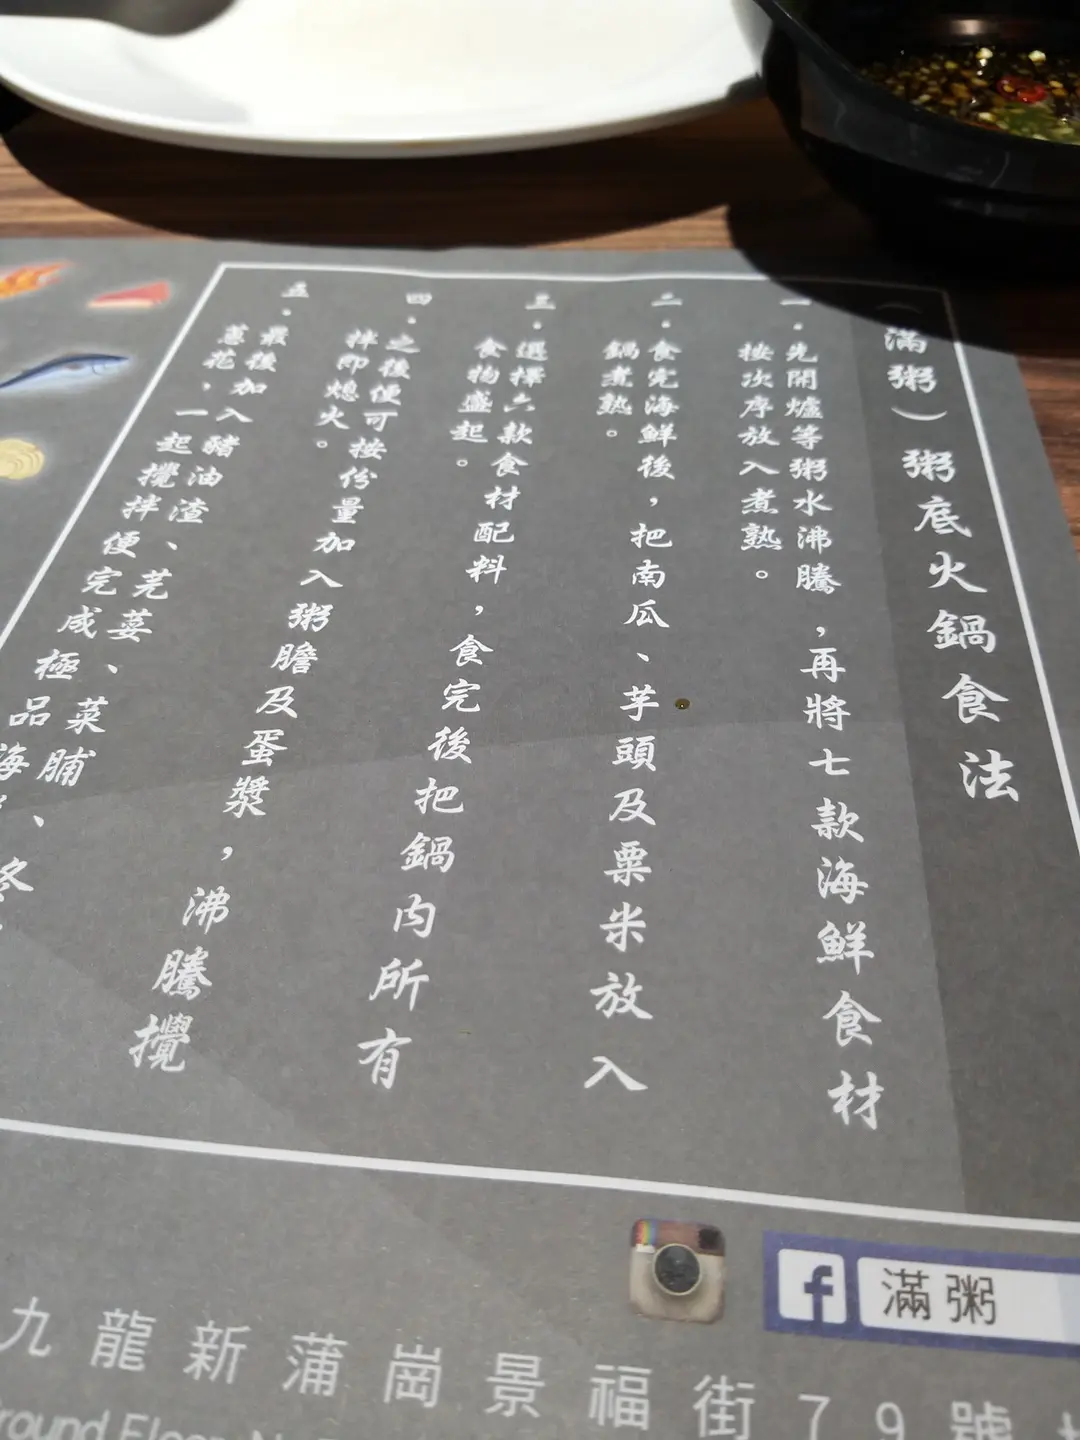 （滿粥）粥底火鍋食法
一．先開爐等粥水沸騰，再將七款海鮮食材
按次序放入煮熟。
二．食完海鮮後，把南瓜、芋頭及粟米放入
鍋煮熟。
三．選擇六款食材配料，食完後把鍋內所有
食物盛起。
四．之後便可按份量加入粥膽及蛋漿，沸騰攪
拌即熄火。
五．最後加入豬油渣、芫荽、菜脯、冬
蔥花、一起攪拌便完成極品海
滿粥
九龍新蒲崗景福街79號
Ground Floor